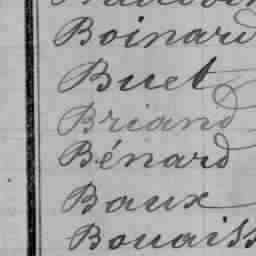 Boinard
Buet
Briand
Bénard
Baux
Bouaiss